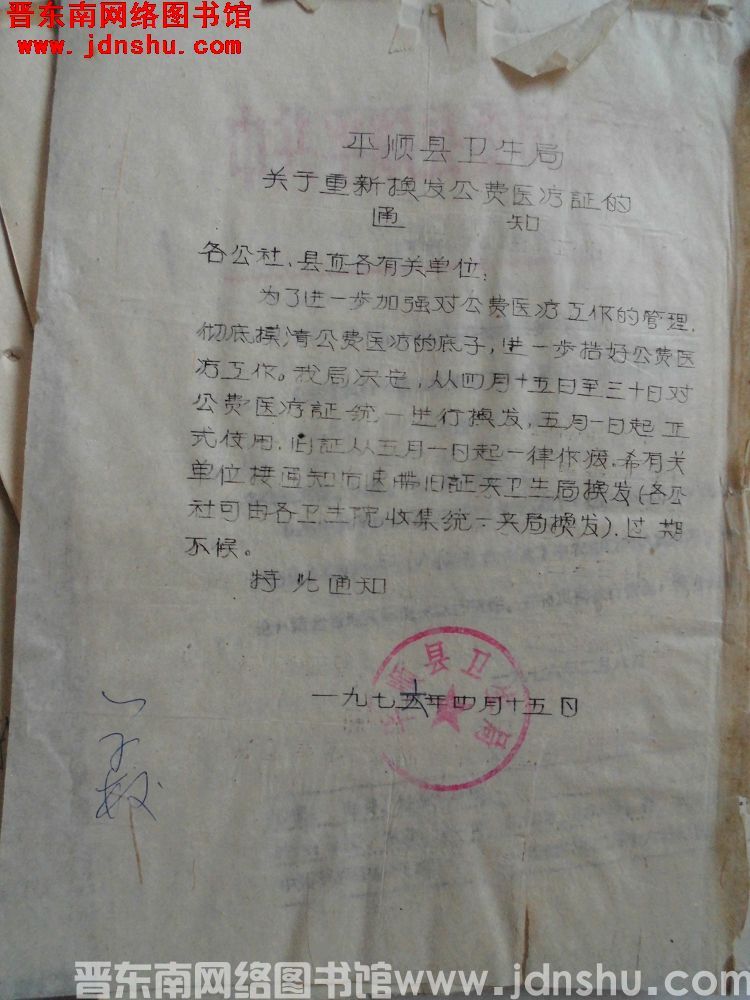 晋东南网络图书馆
www.jdnshu.com
平顺县卫生局
关于重新换发公费医疗証的
通 知
各公社、县直各有关单位：
为了进一步加强对公费医疗工作的管理，
彻底摸清公费医疗的底子，进一步搞好公费医
疗工作。我局决定，从四月十五日至三十日对
公费医疗証统一进行换发，五月一日起正
式使用，旧証从五月一日起一律作废，希有关
单位接通知后速带旧証来卫生局换发（各公
社可由各卫生院收集统一来局换发），过期
不候。
特此通知
平顺县卫生局
一九七六年四月十五日
晋东南网络图书馆www.jdnshu.com